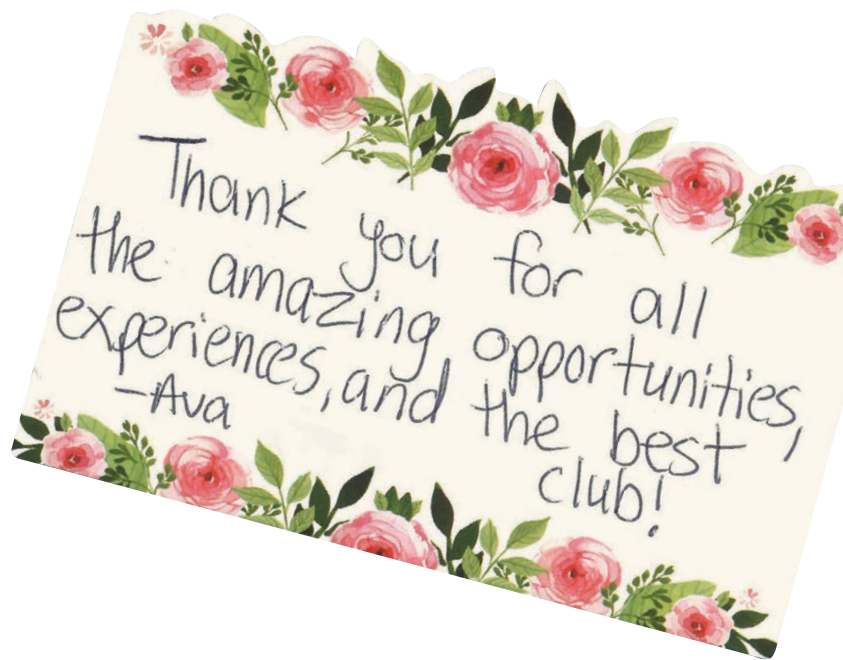 Thank you for all
the amazing opportunities,
experiences, and the best
club!
-Ava